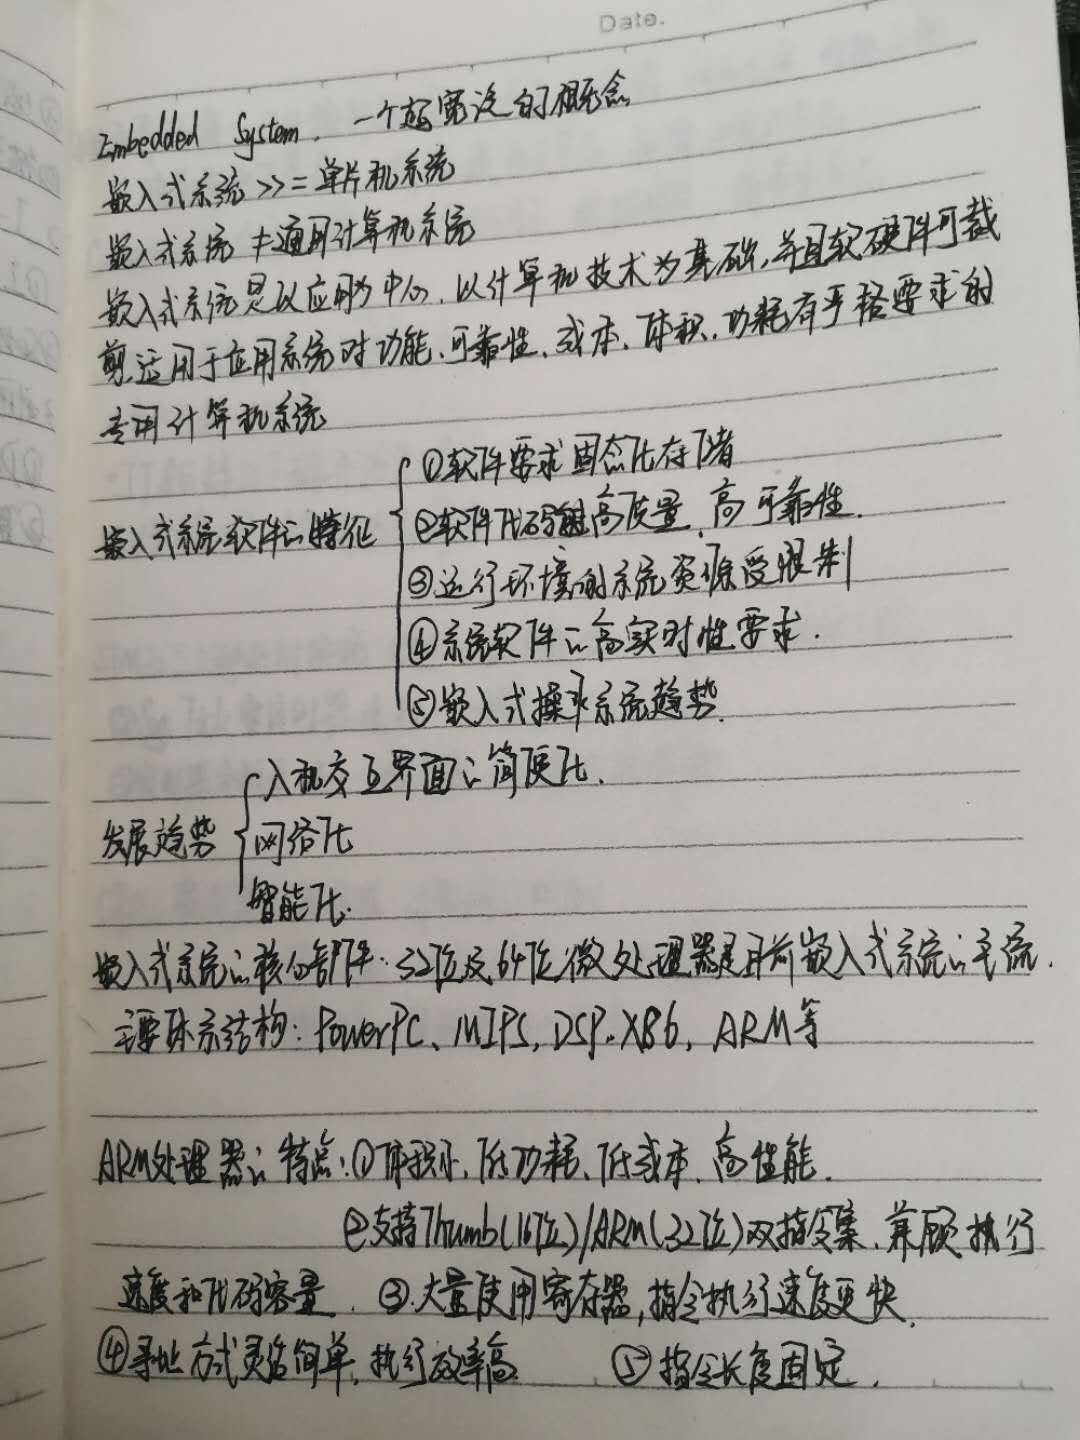 Date.
Embedded System. 一个超宽泛的概念
嵌入式系统 >> = 单片机系统
嵌入式系统 ≠ 通用计算机系统
嵌入式系统是以应用为中心, 以计算机技术为基础, 并且软硬件可裁
剪, 适用于应用系统对功能、可靠性、成本、体积、功耗有严格要求的
专用计算机系统
①软件要求固态化存储
嵌入式系统软件的特征
②软件代码高质量、高可靠性.
③运行环境的系统资源受限制
④系统软件的高实时性要求.
⑤嵌入式操作系统趋势.
人机交互界面的简便化.
发展趋势
网络化
智能化.
嵌入式系统的核心部件: 32位及64位微处理器是目前嵌入式系统的主流.
主要体系结构: PowerPC、MIPS, DSP, X86, ARM等
ARM处理器的特点: ①体积小, 低功耗、低成本、高性能.
②支持Thumb(16位)/ARM(32位)双指令集、兼顾执行
速度和代码容量. ③.大量使用寄存器, 指令执行速度更快.
④寻址方式灵活简单, 执行效率高 ⑤指令长度固定.